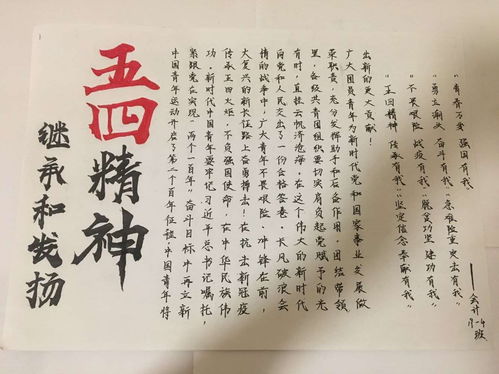 五四精神
继承和发扬
中国青年运动开启了第二个百年征程,中国青年将
紧跟党在实现"两个一百年"奋斗目标中再立新
功.新时代中国青年要牢记习近平总书记嘱托,
传承五四火炬,不负强国使命,在中华民族伟
大复兴的新长征路上奋勇搏击!在抗击新冠疫
情的战争中,广大青年不畏艰险、冲锋在前,
向党和人民交出了一份合格答卷.长风破浪会
有时,直挂云帆济沧海,在这个伟大的新时代
里,各级共青团组织要切实肩负起党赋予的光
荣职责,充分发挥助手和石奋作用,团结带领
广大团员青年为新时代党和国家事业发展做
出新的更大贡献!
"五四精神 传承有我""坚定信念 奉献有我"
"不畏艰险 战疫有我""脱贫攻坚 建功有我"
"勇立潮头 奋斗有我""急难险重 突击有我"
"青春万岁 强国有我"
——会计
19-4
班